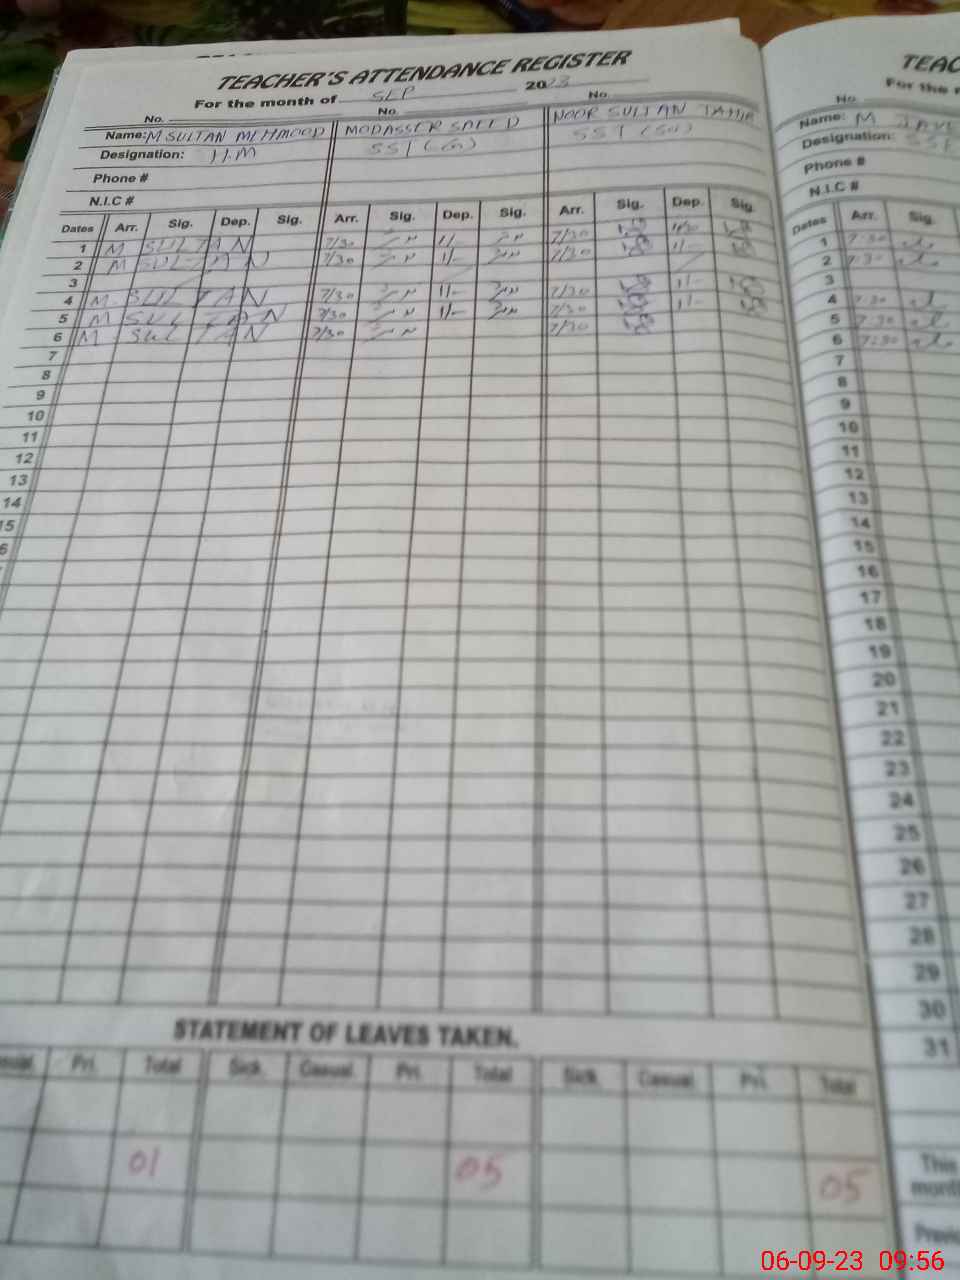 TEACHER'S ATTENDANCE REGISTER
For the month of SEP 2023
No. No. No.
Name: M SULTAN MEHMOOD MODASSER SAEED NOOR SULTAN TAHIR
Designation: H.M SST (G) SST
Phone #
N.I.C #
Dates Arr. Sig. Dep. Sig. Arr. Sig. Dep. Sig. Arr. Sig. Dep. Sig.
1 M SULTAN 7/30 1/- 7/30 1/30
2 M SULTAN 7/30 1/- 7/30 1/-
3
4 M. SULTAN 7/30 1/- 7/30 1/-
5 M SULTAN 7/30 1/- 7/30 1/-
6 M. SULTAN 7/30 7/30
7
8
9
10
11
12
13
14
15
6
STATEMENT OF LEAVES TAKEN.
Pri. Total Sick. Casual. Pri. Total Sick. Casual. Pri. Total
01 05 05
TEAC
For the
No.
Name: M
Designation: SST
Phone #
N.I.C #
Dates Arr. Sig.
1 7:30
2 7:30
3
4 7:30
5 7:30
6 7:30
7
8
9
10
11
12
13
14
15
16
17
18
19
20
21
22
23
24
25
26
27
28
29
30
31
This
month
06-09-23 09:56